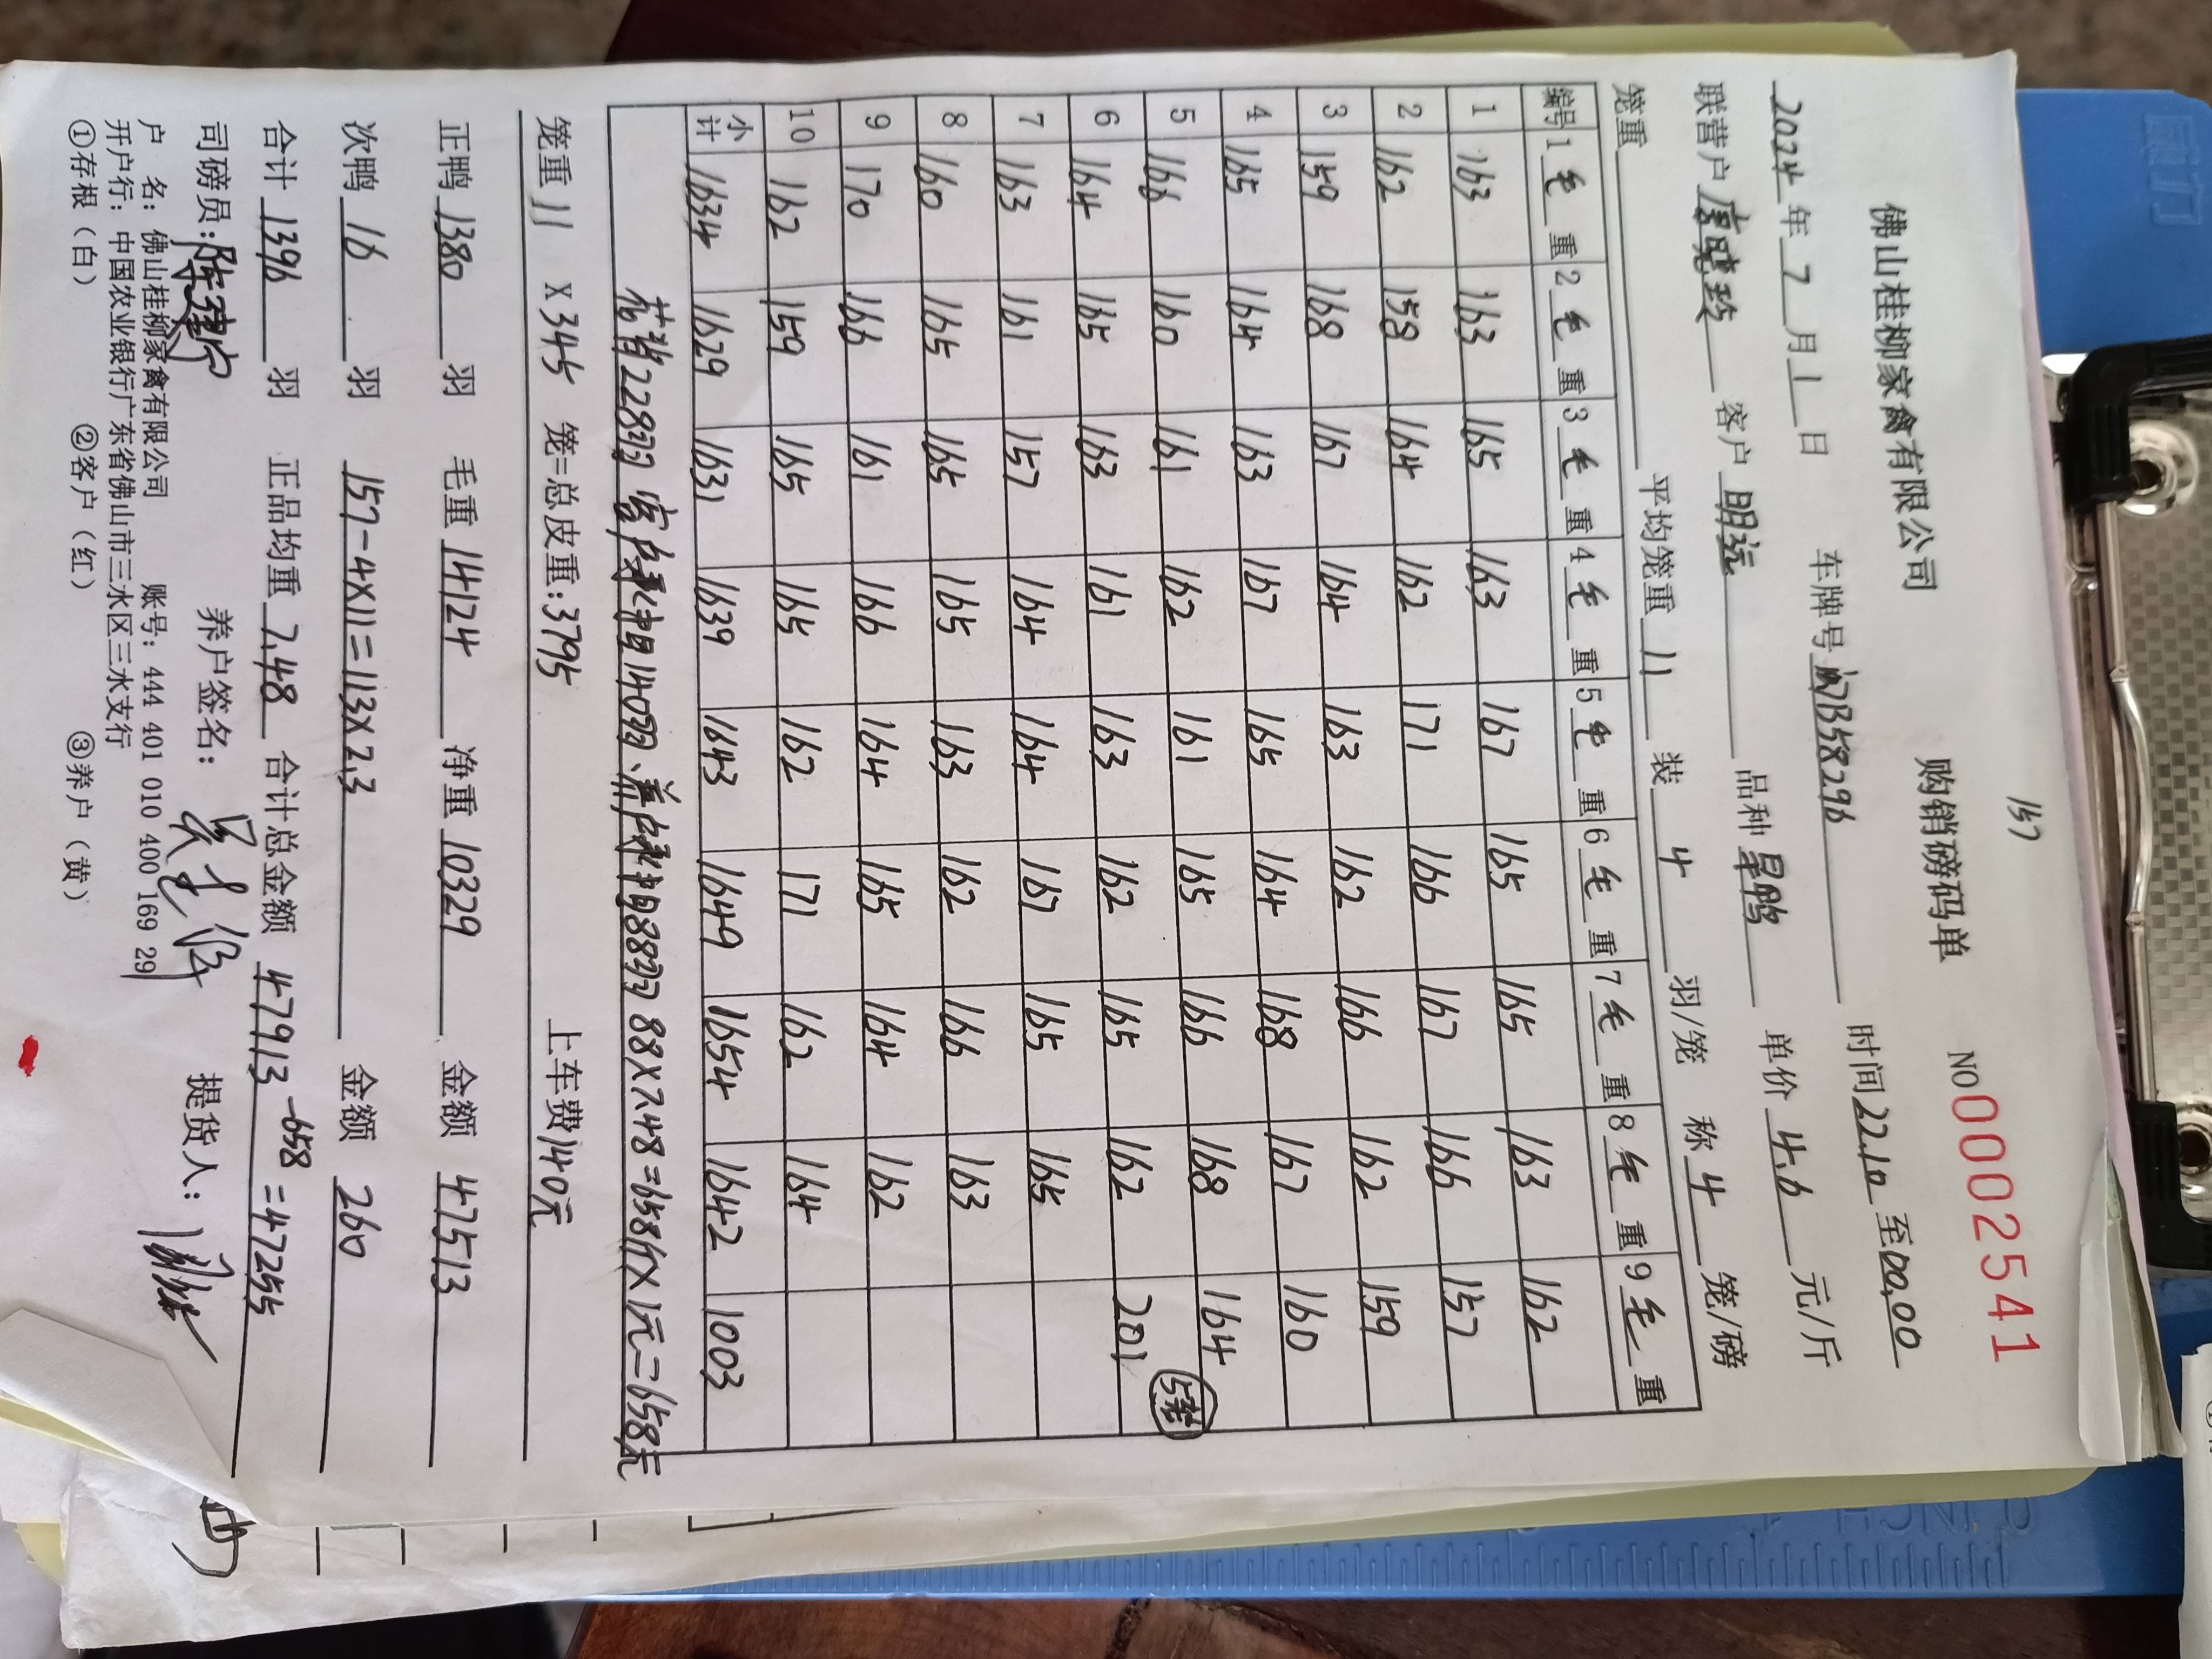 157
佛山桂柳家禽有限公司 购销磅码单 NO 0002541
2024年7月1日 车牌号 B58296 时间22.10至00.00
联营户 客户 明远 品种 单价4.6元/斤
笼重 平均笼重11 装4羽/笼 称4笼/磅
编号 1毛重 2毛重 3毛重 4毛重 5毛重 6毛重 7毛重 8毛重 9毛重
1 163 163 165 163 167 165 165 163 162
2 162 158 164 162 171 166 167 166 157
3 159 168 167 164 163 162 166 162 159
4 165 164 163 167 165 164 168 167 160
5 166 160 161 162 161 165 166 168 164
6 164 165 163 161 163 162 165 162 201 (5笼)
7 163 161 157 164 164 167 165 165
8 160 165 165 165 163 162 166 163
9 170 166 161 166 164 165 164 162
10 162 159 165 165 162 171 162 164
小计 1634 1629 1631 1639 1643 1649 1654 1642 1003
228羽 客户承担140羽、养户承担88羽 88X7.48=658斤X1元=658元
笼重11 X345 笼=总皮重:3795 上车费140元
正鸭1380羽 毛重14124 净重10329 金额47513
次鸭16羽 157-4X11=113X2.3 金额260
合计1396羽 正品均重:7.48 合计总金额47913-658=47255
司磅员: 养户签名: 提货人:
户 名: 佛山桂柳家禽有限公司 账号: 444 401 010 400 169 29
开户行: 中国农业银行广东省佛山市三水区三水支行
①存根（白） ②客户（红） ③养户（黄）